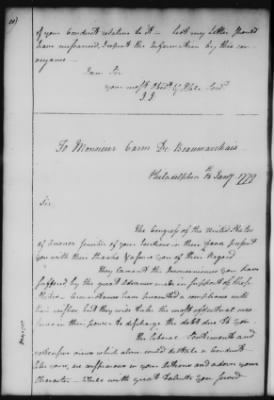 of your Conduct relative to it — lest my Letter should
have miscarried, I repeat the Information by this con-
veyance —
I am Sir
your most Obedt. & Hble Servt.
J. J.
To Monsieur Caron De Beaumarchais
Philadelphia 15th Jany 1779
Sir
The Congress of the United States
of America sensible of your Exertions in their favor present
you with their thanks & assure you of their Regard
They lament the Inconveniences you have
suffered by the great advances made in support of these
States. Circumstances have prevented a compliance with
their wishes, but they will take the most effectual mea-
sures in their power to discharge the debt due to you.
The liberal Sentiments and
extensive views which alone could dictate a Conduct
like yours, are conspicuous in your Actions and adorn your
Character. While with great Talents you served